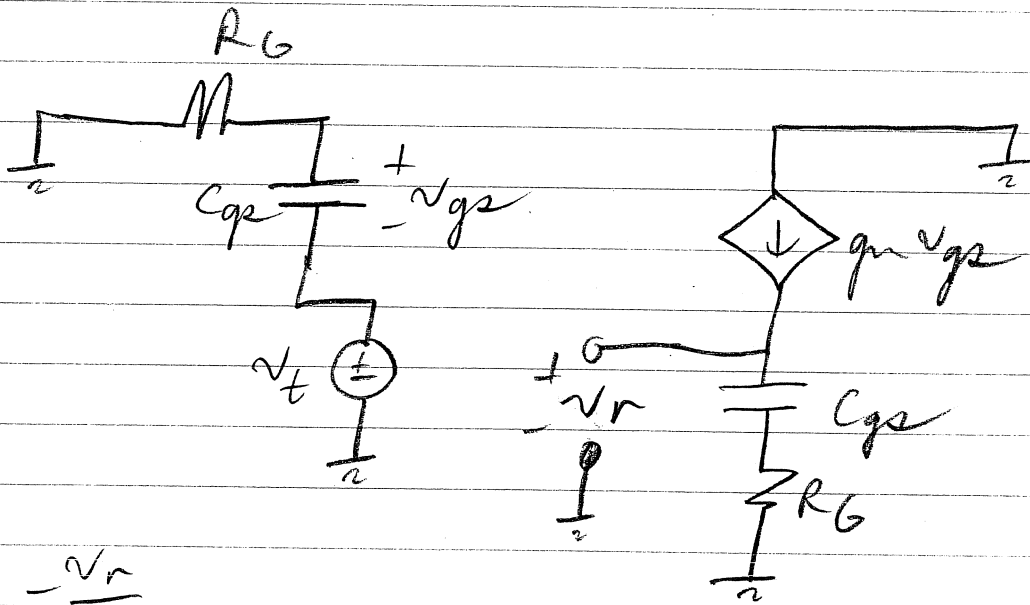 R_G
C_gs
+
v_gs
-
g_m v_gs
v_t
+
-
+
v_r
-
C_gs
R_G
- v_r